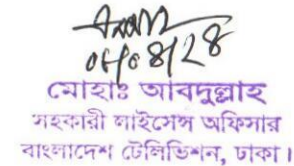 মোহাঃ আবদুল্লাহ
সহকারী লাইসেন্স অফিসার
বাংলাদেশ টেলিভিশন, ঢাকা।